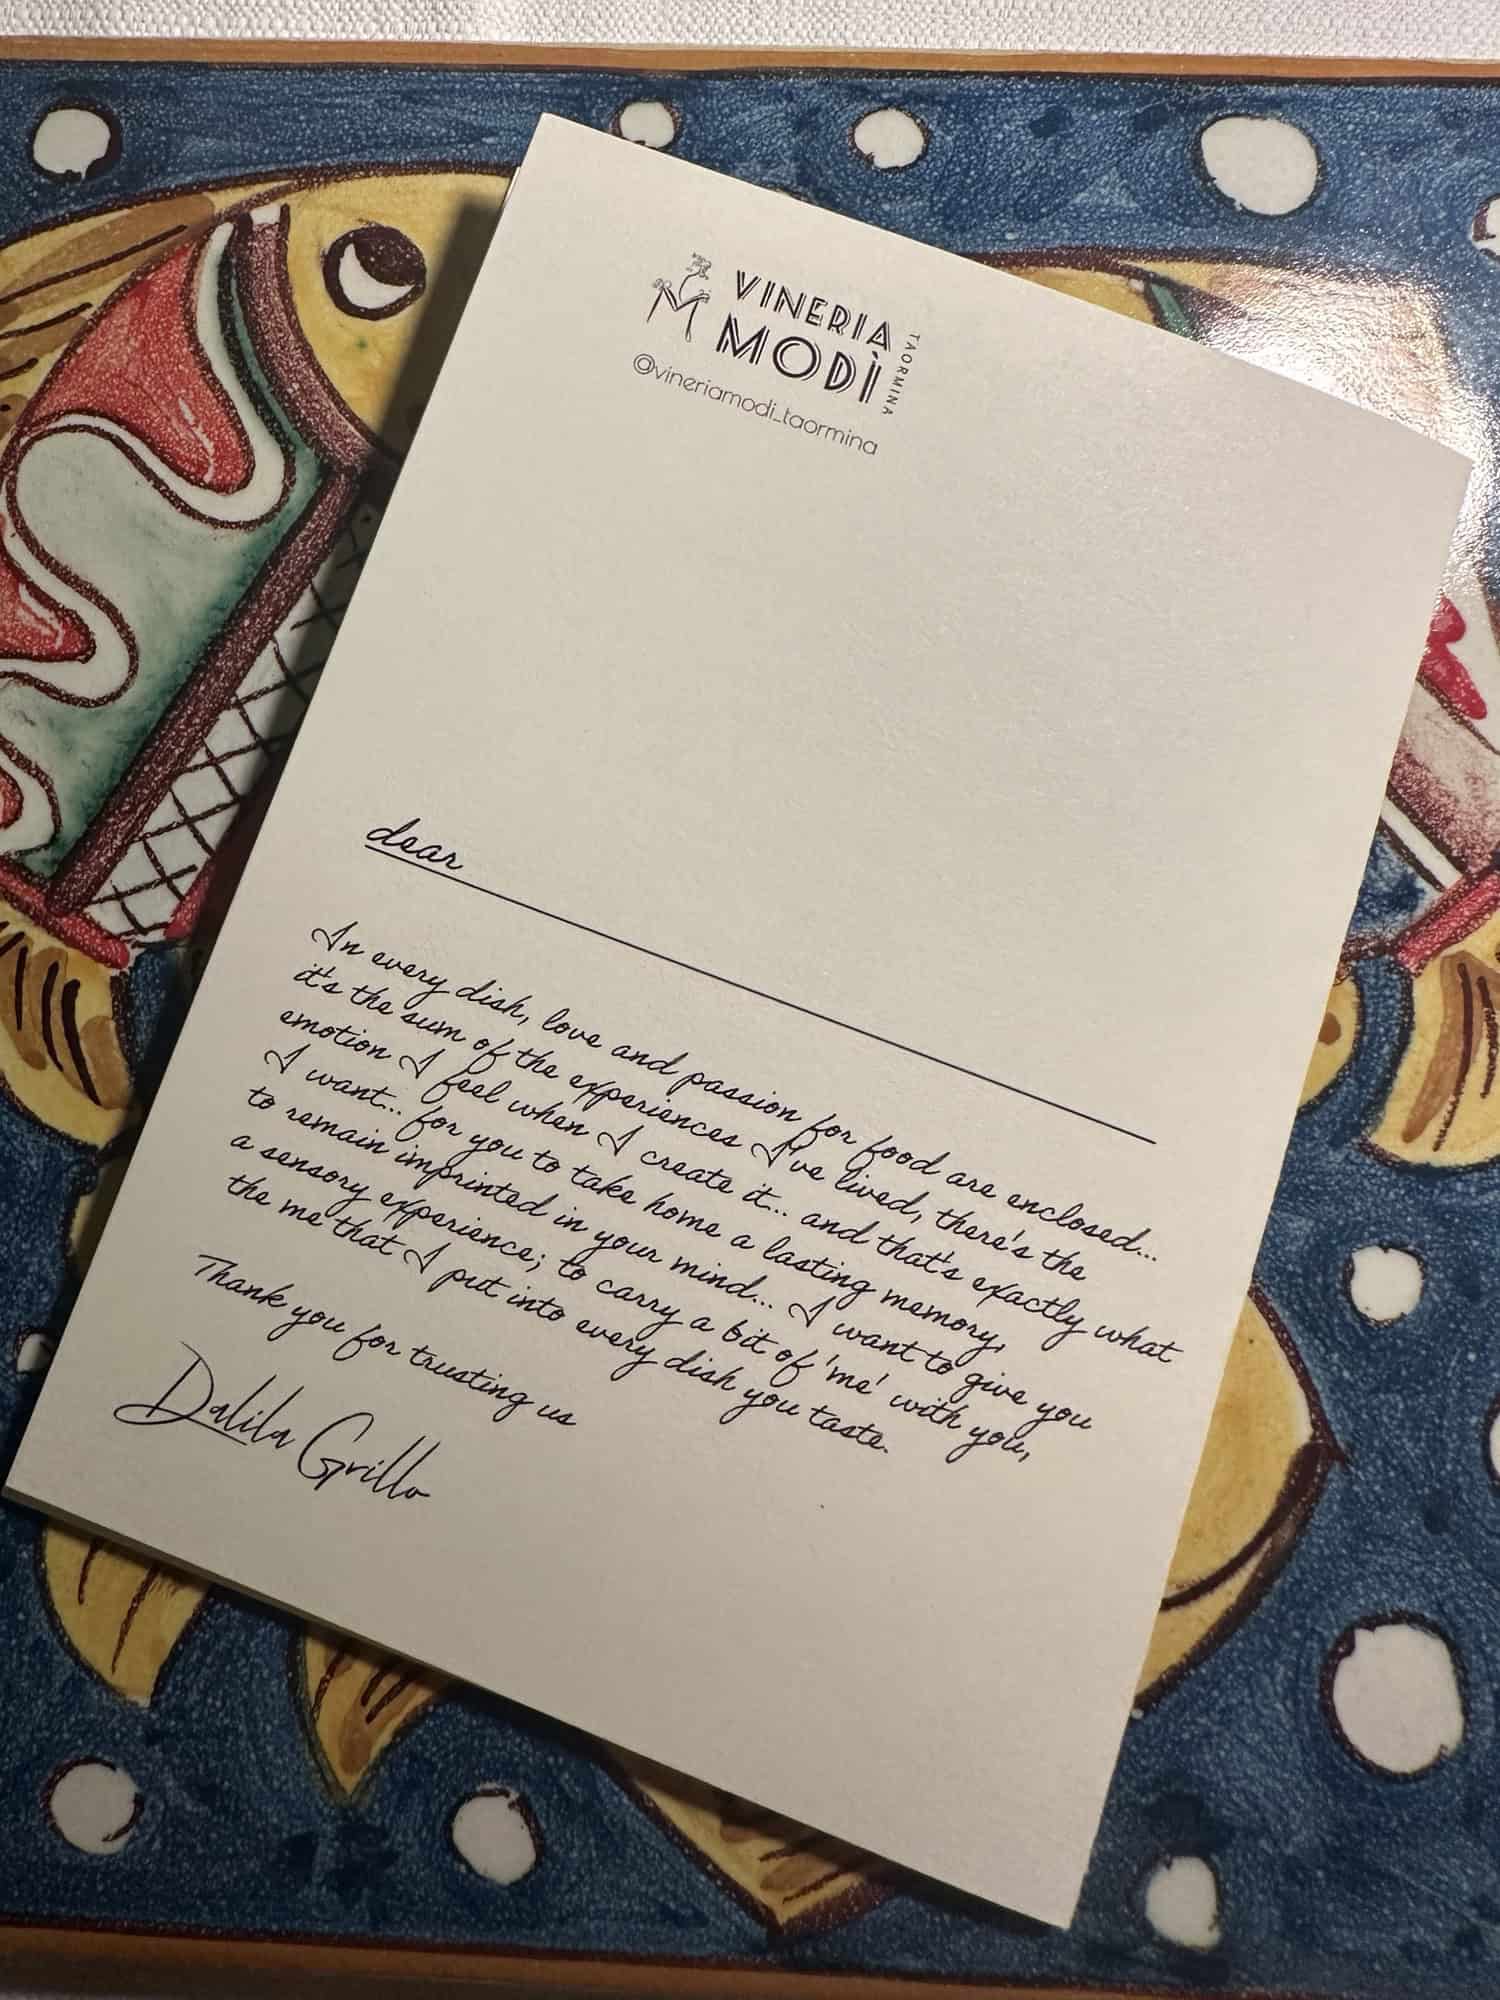 VINERIA
MODÌ
TAORMINA
@vineriamodi_taormina
dear
In every dish, love and passion for food are enclosed...
it's the sum of the experiences I've lived, there's the
emotion I feel when I create it... and that's exactly what
I want... for you to take home a lasting memory,
to remain imprinted in your mind... I want to give you
a sensory experience; to carry a bit of 'me' with you,
the me that I put into every dish you taste.
Thank you for trusting us
Dalila Grillo